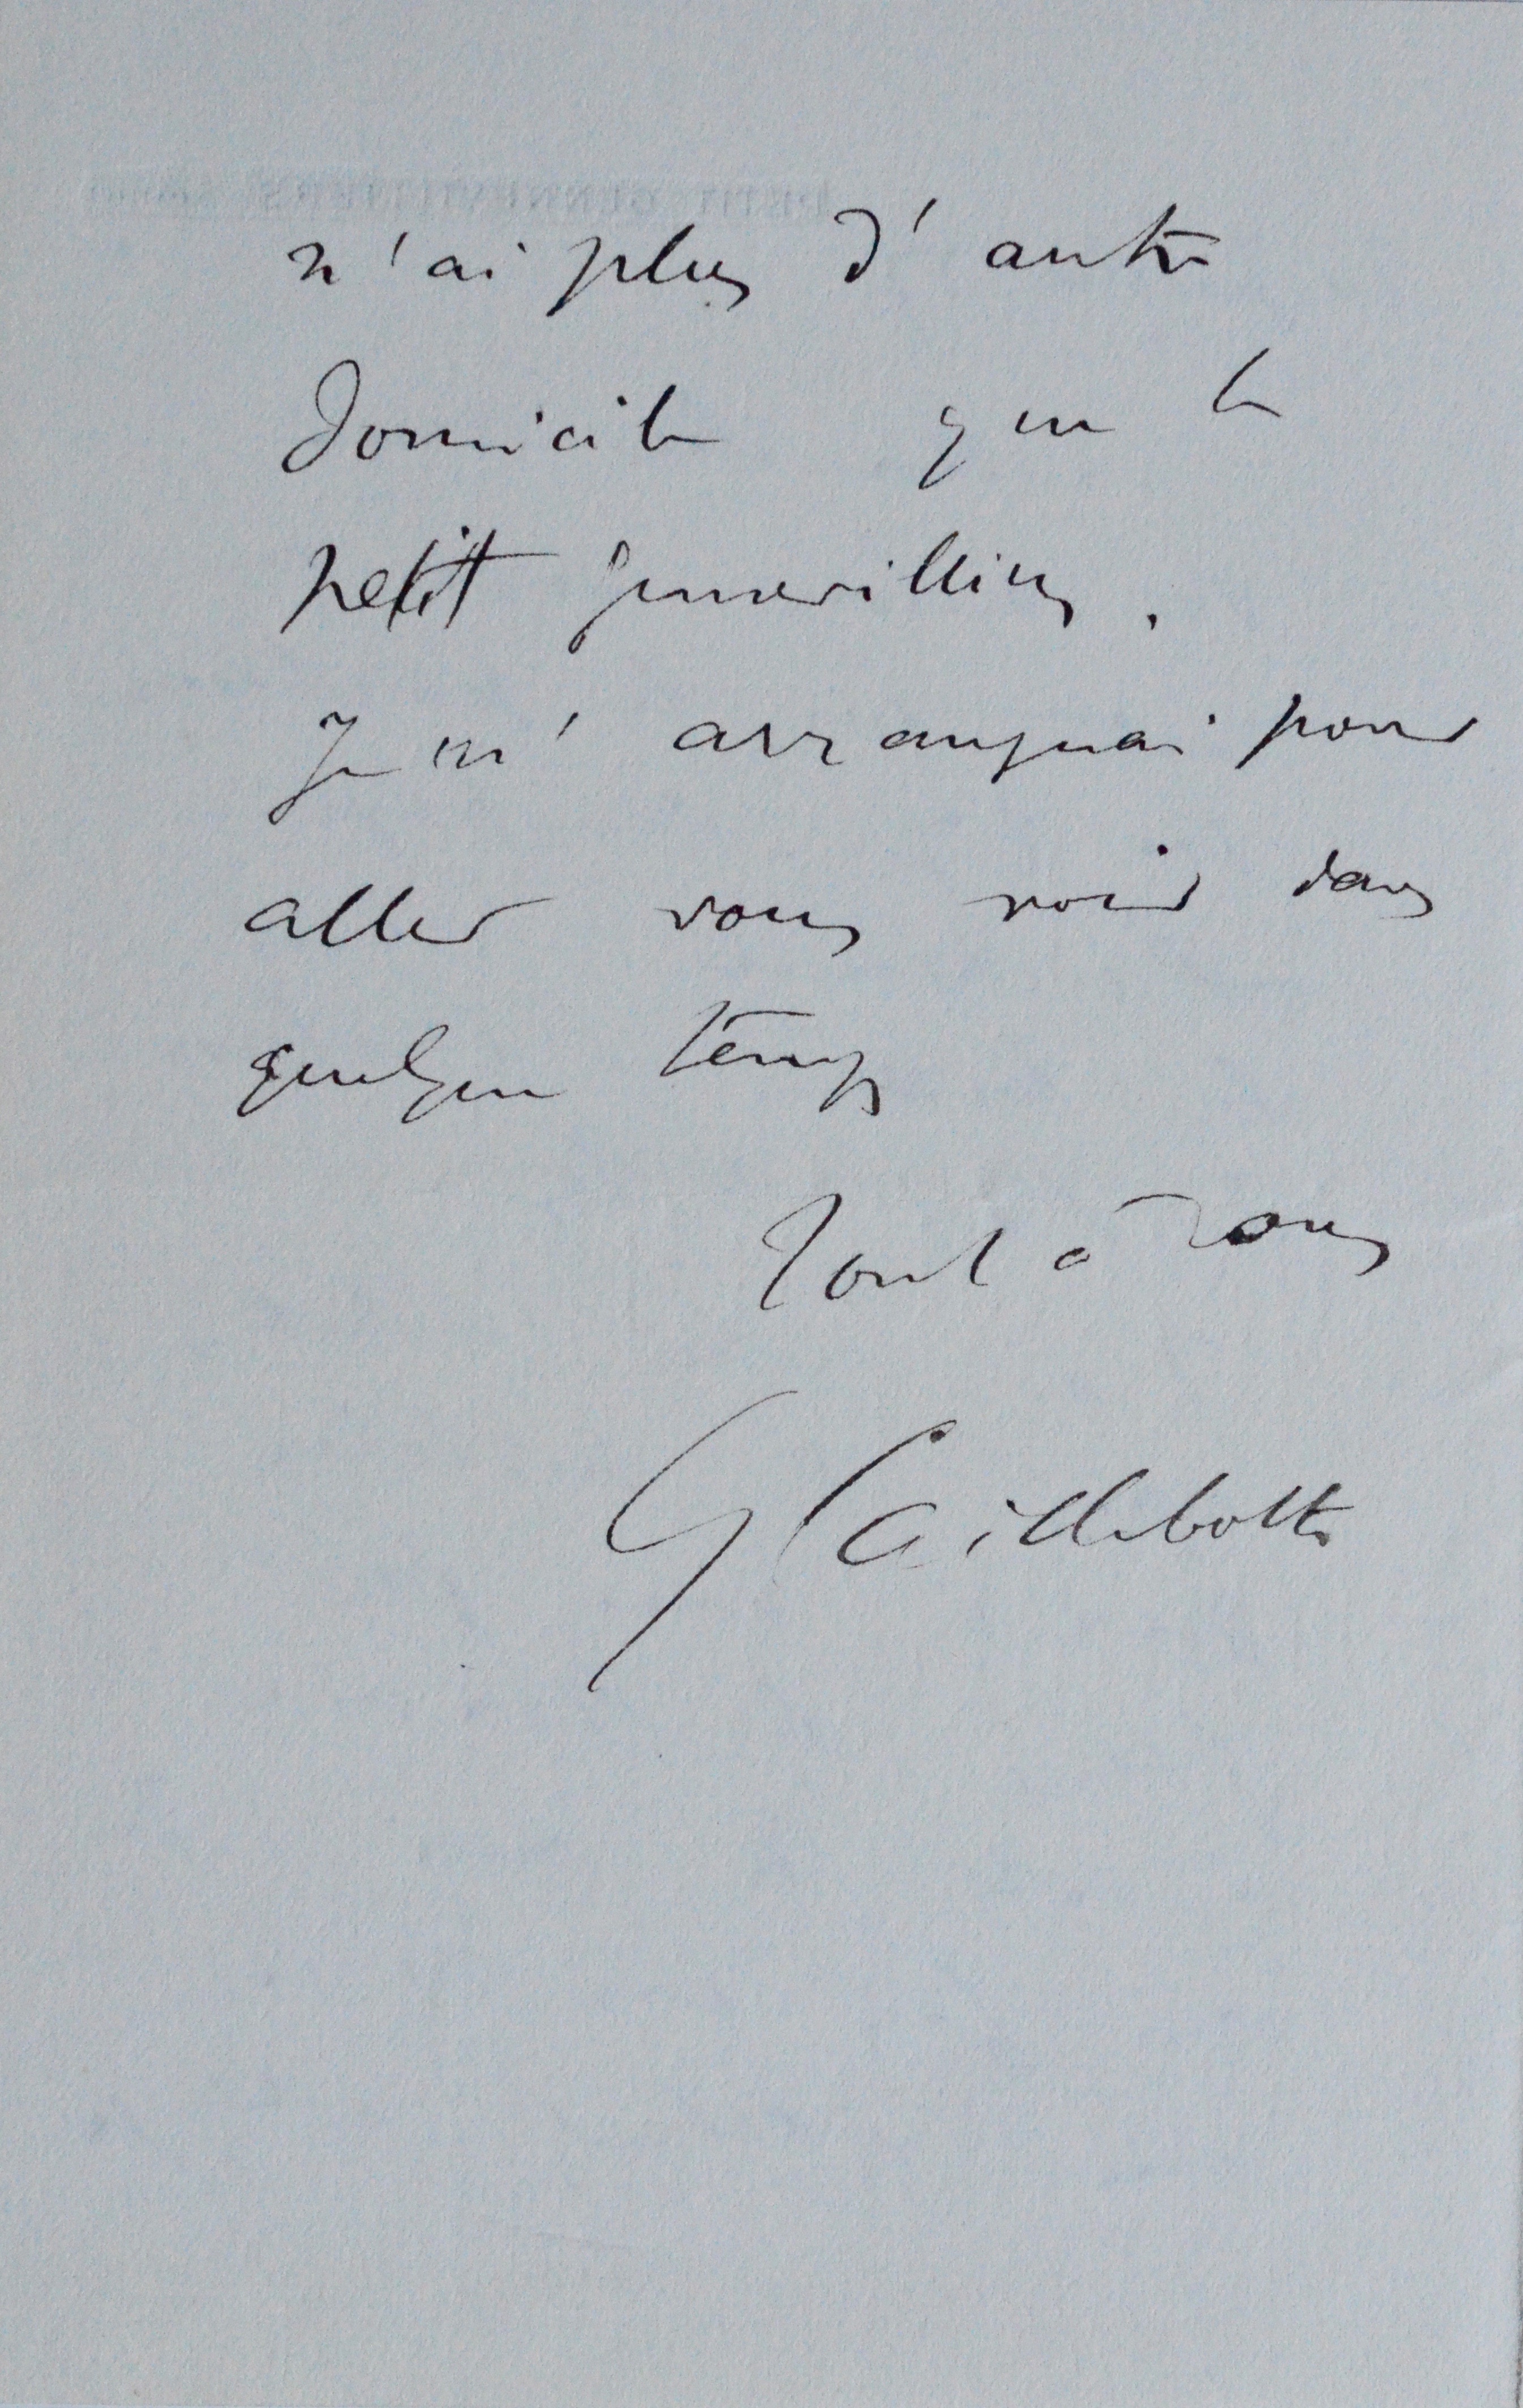 PETIT GENNEVILLIERS
n'ai plus d'autre
domicile que le
petit gennevilliers.
Je m'arrangerai pour
aller vous voir dans
quelque temps
Tout à vous
G Caillebotte